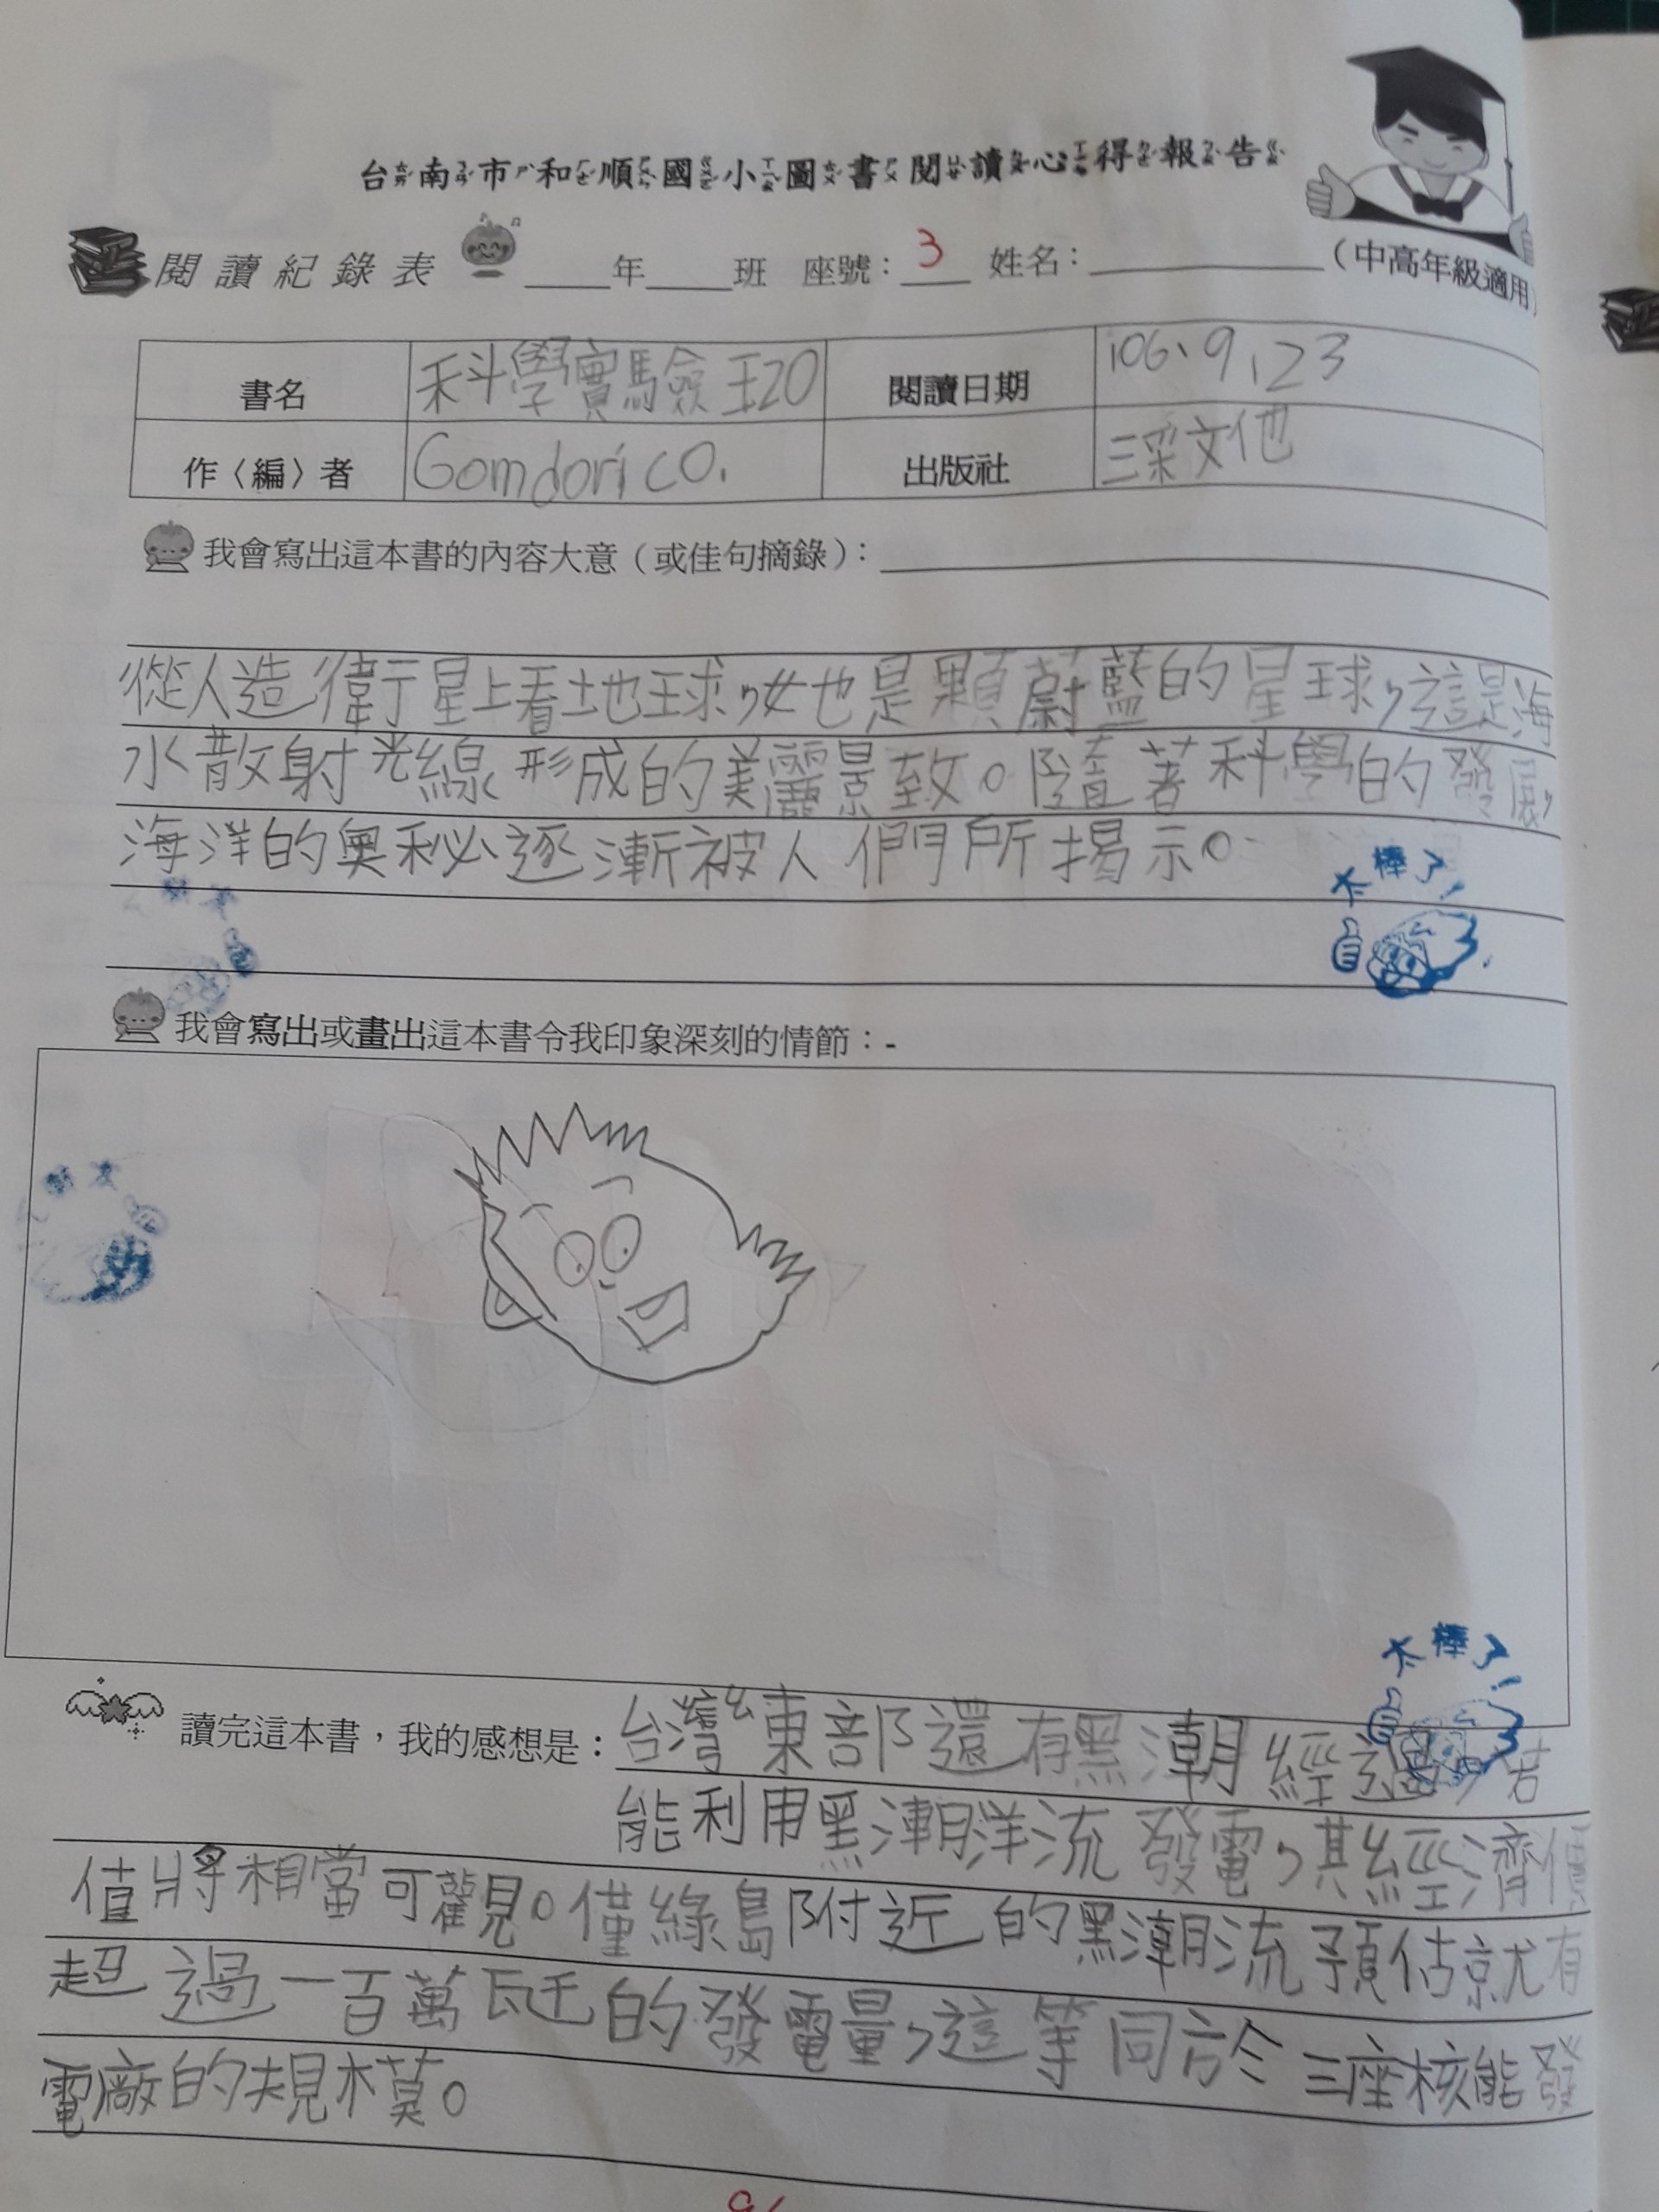 台南市和順國小圖書閱讀心得報告
閱讀紀錄表 ____年____班 座號：3 姓名：__________（中高年級適用）
書名 科學實驗王20 閱讀日期 106、9、23
作〈編〉者 Gomdori co. 出版社 三采文化
我會寫出這本書的內容大意（或佳句摘錄）：
從人造衛星上看地球，她是顆蔚藍的星球，這是海
水散射光線形成的美麗景致。隨著科學的發展，
海洋的奧秘逐漸被人們所揭示。
太棒了！
我會寫出或畫出這本書令我印象深刻的情節：-
太棒了！
讀完這本書，我的感想是：台灣東部還有黑潮經過，若
能利用黑潮洋流發電，其經濟價
值將相當可觀。僅綠島附近的黑潮流預估就有
超過一百萬瓩的發電量，這等同於三座核能發
電廠的規模。